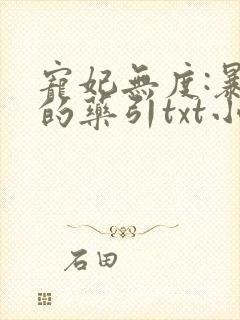 寵妃無度:暴
的藥引txt小
石田